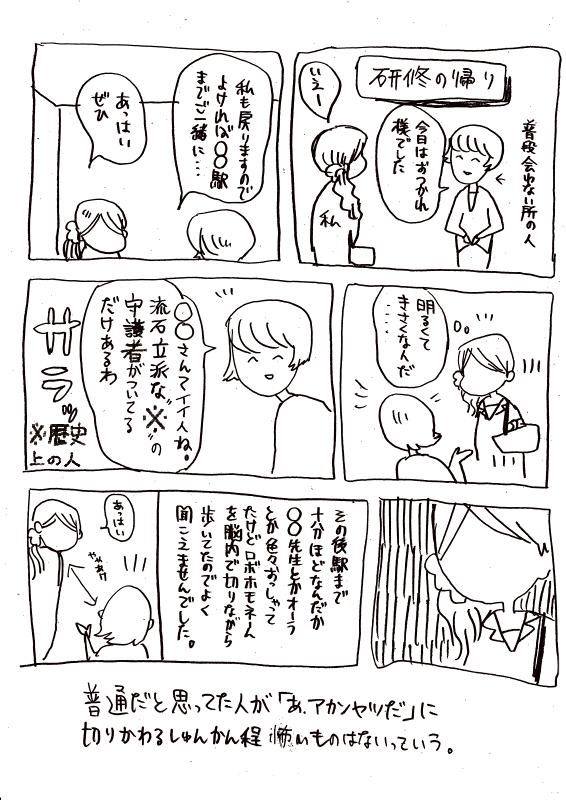 研修の帰り
普段会わない所の人
今日はおつかれ
様でした
いえー
私
私も戻りますので
よければ〇〇駅
までご一緒に…
あっはい
ぜひ
明るくて
きさくなんだ
……
〇〇さんてイイ人ね。
流石立派な"※"の
守護者がついてる
だけあるわ
サラッ
※歴史
上の人
その後駅まで
十分ほどなんだか
〇〇先生とかオーラ
とか色々おっしゃって
たけどロボホモネーム
を脳内で切りながら
歩いてたのでよく
聞こえませんでした。
あっはい
普通だと思ってた人が「あ、アカンヤツだ」に
切りかわるしゅんかん程怖いものはないっていう。